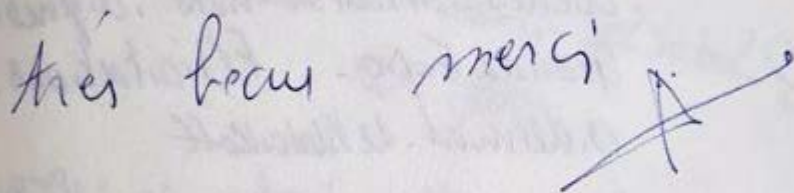 trés beau merci